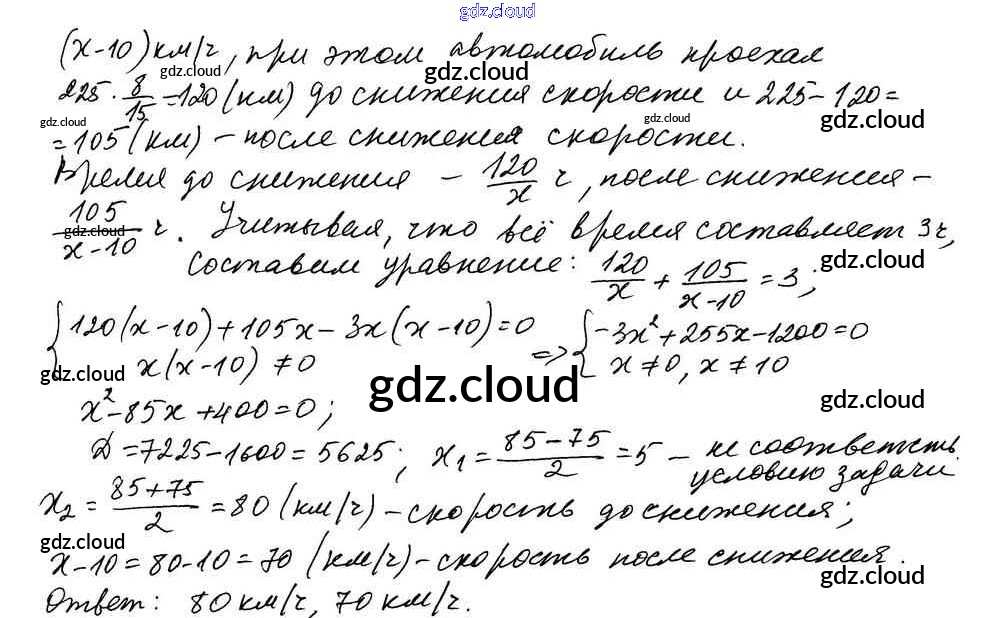 gdz.cloud
(x-10) км/ч, при этом автомобиль проехал
gdz.cloud gdz.cloud
225 · 8/15 = 120 (км) до снижения скорости и 225 - 120 =
gdz.cloud gdz.cloud gdz.cloud
= 105 (км) - после снижения скорости.
Время до снижения - 120/x ч, после снижения -
105/(x-10) ч. Учитывая, что всё время составляет 3ч,
gdz.cloud
составим уравнение: 120/x + 105/(x-10) = 3;
gdz.cloud
{120(x-10) + 105x - 3x(x-10) = 0 => {-3x² + 255x - 1200 = 0
x(x-10) ≠ 0 x ≠ 0, x ≠ 10
gdz.cloud gdz.cloud gdz.cloud
x² - 85x + 400 = 0;
D = 7225 - 1600 = 5625; x₁ = (85-75)/2 = 5 - не соответств.
условию задачи
x₂ = (85+75)/2 = 80 (км/ч) - скорость до снижения;
gdz.cloud gdz.cloud
x - 10 = 80 - 10 = 70 (км/ч) - скорость после снижения.
gdz.cloud
Ответ: 80 км/ч, 70 км/ч.